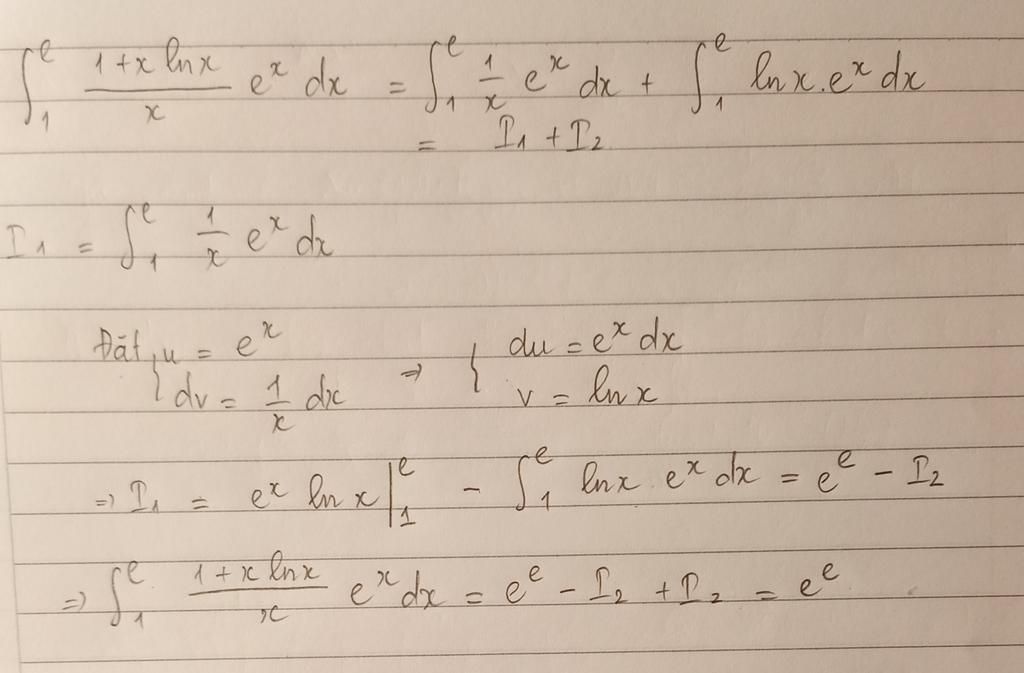 ∫₁ᵉ (1+x lnx)/x eˣ dx = ∫₁ᵉ 1/x eˣ dx + ∫₁ᵉ lnx.eˣ dx
= I₁ + I₂
I₁ = ∫₁ᵉ 1/x eˣ dx
Đặt { u = eˣ ⇒ { du = eˣ dx
dv = 1/x dx v = lnx
⇒ I₁ = eˣ lnx |₁ᵉ - ∫₁ᵉ lnx eˣ dx = eᵉ - I₂
⇒ ∫₁ᵉ (1+x lnx)/x eˣ dx = eᵉ - I₂ + I₂ = eᵉ